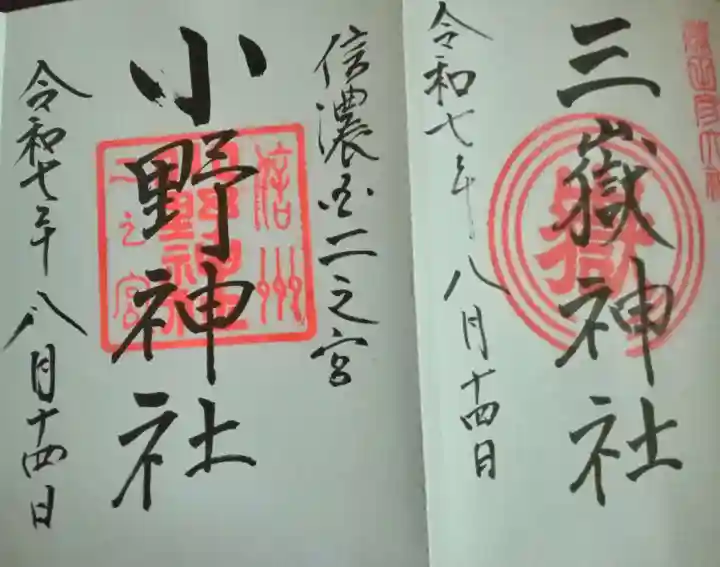 三嶽神社
嶽
令和七年八月十四日
信濃国二之宮
小野神社
信州
二之宮
令和七年八月十四日